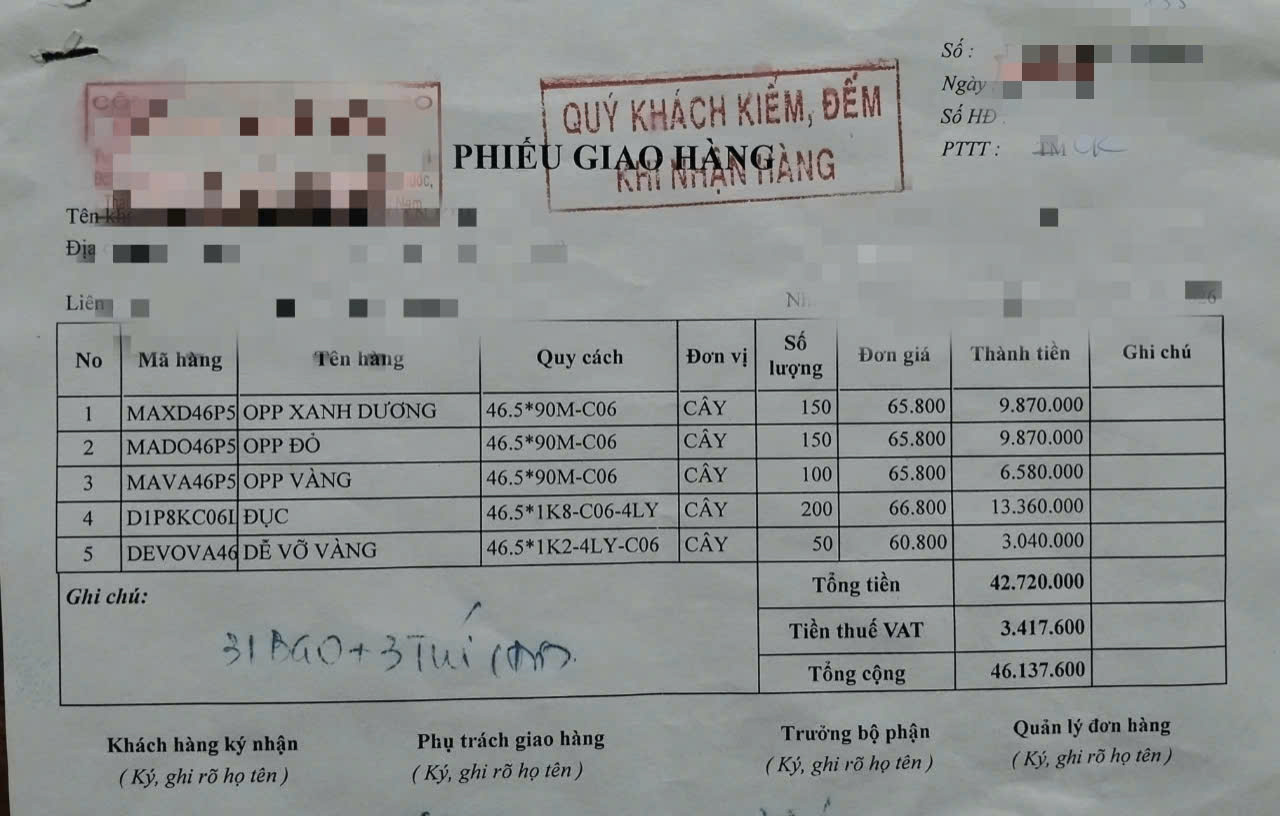 Số :
Ngày
QUÝ KHÁCH KIỂM, ĐẾM
KHI NHẬN HÀNG
Số HĐ
PHIẾU GIAO HÀNG
PTTT : TM CK
Tên
Địa
Liên
No Mã hàng Tên hàng Quy cách Đơn vị Số lượng Đơn giá Thành tiền Ghi chú
1 MAXD46P5 OPP XANH DƯƠNG 46.5*90M-C06 CÂY 150 65.800 9.870.000
2 MADO46P5 OPP ĐỎ 46.5*90M-C06 CÂY 150 65.800 9.870.000
3 MAVA46P5 OPP VÀNG 46.5*90M-C06 CÂY 100 65.800 6.580.000
4 D1P8KC06L ĐỤC 46.5*1K8-C06-4LY CÂY 200 66.800 13.360.000
5 DEVOVA46 DỄ VỠ VÀNG 46.5*1K2-4LY-C06 CÂY 50 60.800 3.040.000
Ghi chú: Tổng tiền 42.720.000
31 BAO + 3 TUÍ
Tiền thuế VAT 3.417.600
Tổng cộng 46.137.600
Khách hàng ký nhận Phụ trách giao hàng Trưởng bộ phận Quản lý đơn hàng
( Ký, ghi rõ họ tên ) ( Ký, ghi rõ họ tên ) ( Ký, ghi rõ họ tên ) ( Ký, ghi rõ họ tên )